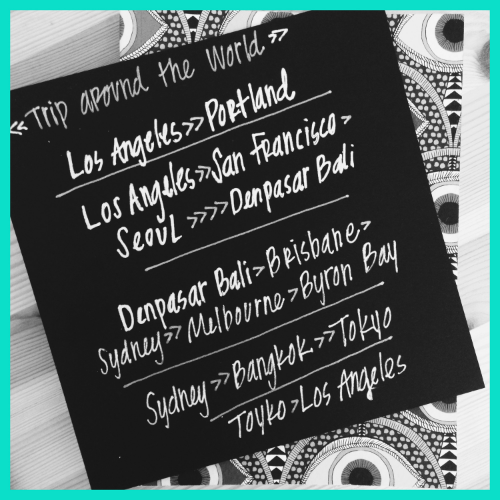 << Trip around the World >>
Los Angeles >> Portland
Los Angeles >> San Francisco >
Seoul >>>> Denpasar Bali
Denpasar Bali > Brisbane >
Sydney >> Melbourne > Byron Bay
Sydney >> Bangkok >> Tokyo
Toyko > Los Angeles